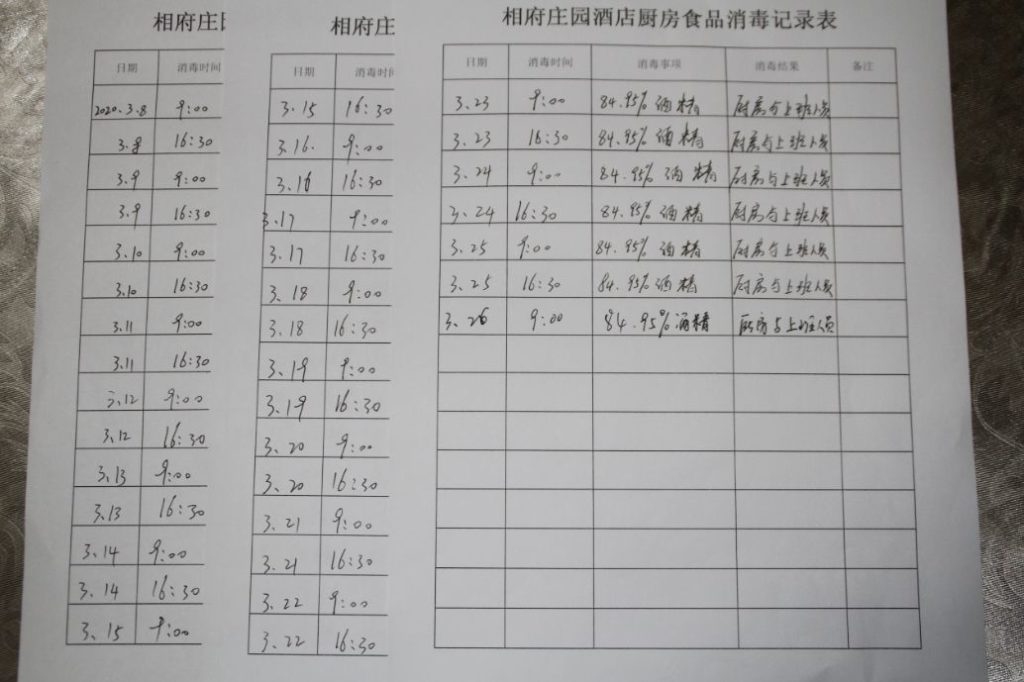 相府庄
日期 消毒时间
2020.3.8 9:00
3.8 16:30
3.9 9:00
3.9 16:30
3.10 9:00
3.10 16:30
3.11 9:00
3.11 16:30
3.12 9:00
3.12 16:30
3.13 9:00
3.13 16:30
3.14 9:00
3.14 16:30
3.15 9:00
相府庄
日期 消毒时
3.15 16:30
3.16. 9:00
3.16 16:30
3.17 9:00
3.17 16:30
3.18 9:00
3.18 16:30
3.19 9:00
3.19 16:30
3.20 9:00
3.20 16:30
3.21 9:00
3.21 16:30
3.22 9:00
3.22 16:30
相府庄园酒店厨房食品消毒记录表
日期 消毒时间 消毒事项 消毒结果 备注
3.23 9:00 84.95%酒精 厨房与上班人员
3.23 16:30 84.95%酒精 厨房与上班人员
3.24 9:00 84.95%酒精 厨房与上班人员
3.24 16:30 84.95%酒精 厨房与上班人员
3.25 9:00 84.95%酒精 厨房与上班人员
3.25 16:30 84.95%酒精 厨房与上班人员
3.26 9:00 84.95%酒精 厨房与上班人员